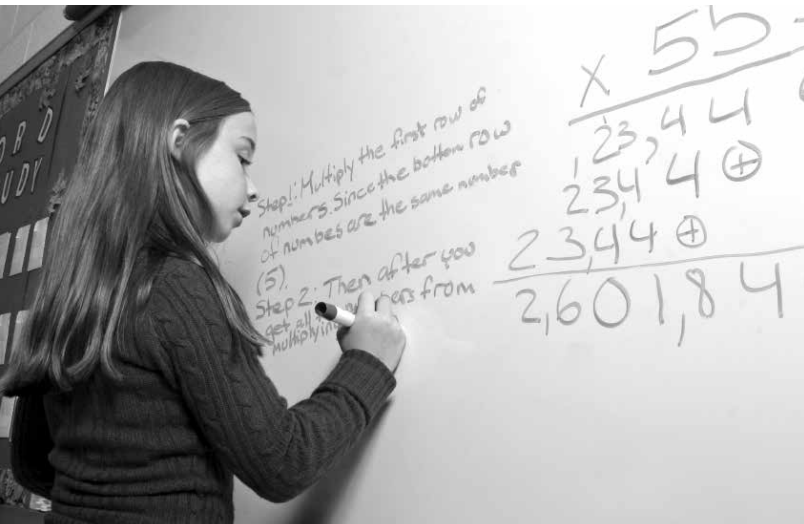 ORD
UDY
Step1: Multiply the first row of
numbers. Since the bottom row
of numbes are the same number
(5).
Step 2: Then after you
get all numbers from
multiplyin
x 55
23,44
23,44
23,44
2,601,84